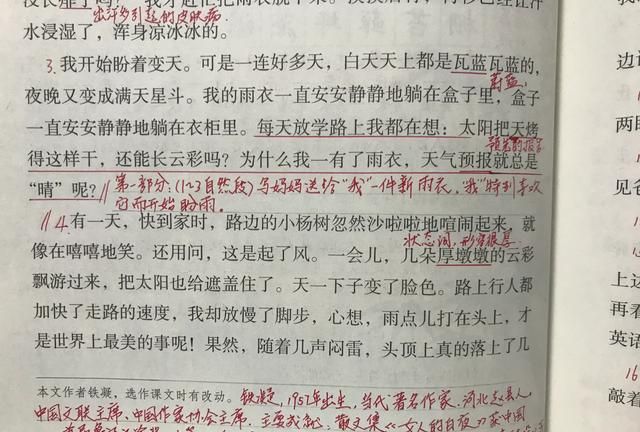 出汗多引起的皮肤病
水浸湿了，浑身凉冰冰的。
3.我开始盼着变天。可是一连好多天，白天天上都是瓦蓝瓦蓝的，
蔚蓝
夜晚又变成满天星斗。我的雨衣一直安安静静地躺在盒子里，盒子
一直安安静静地躺在衣柜里。每天放学路上我都在想：太阳把天烤
得这样干，还能长云彩吗？为什么我一有了雨衣，天气预报就总是
“晴”呢？
第一部分：(1-3自然段)写妈妈送给“我”一件新雨衣，“我”特别喜欢
它而开始盼雨。
4.有一天，快到家时，路边的小杨树忽然沙啦啦地喧闹起来，就
像在嘻嘻地笑。还用问，这是起了风。一会儿，几朵厚墩墩的云彩
状态词，形容很厚
飘游过来，把太阳也给遮盖住了。天一下子变了脸色。路上行人都
加快了走路的速度，我却放慢了脚步，心想，雨点儿打在头上，才
是世界上最美的事呢！果然，随着几声闷雷，头顶上真的落上了几
本文作者铁凝，选作课文时有改动。
铁凝，1957年出生，当代著名作家，河北赵县人
中国文联主席、中国作家协会主席，主要成就：散文集《女人的白夜》获中国
边
两
见
上边
再看
英语
16
敲着